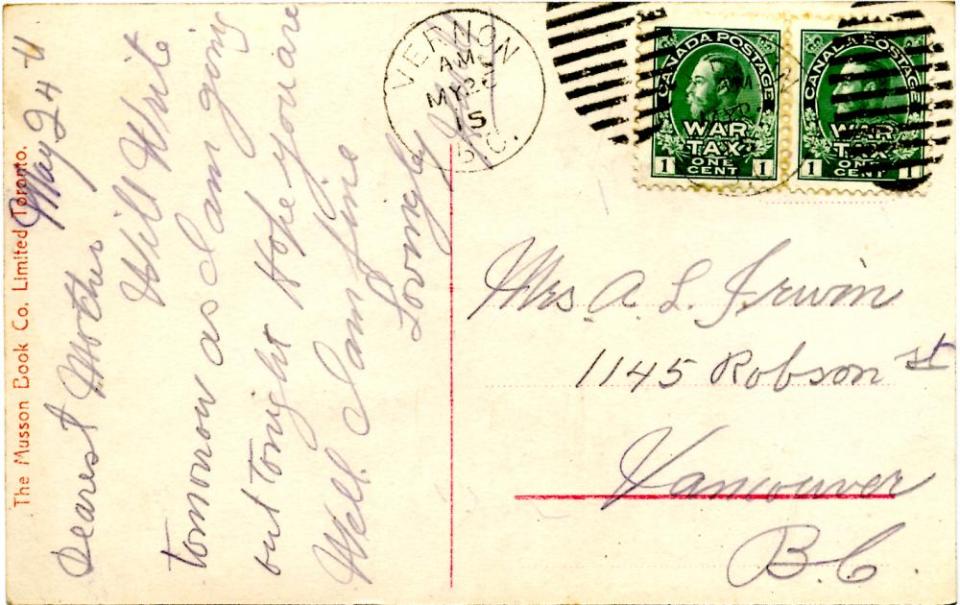 The Musson Book Co. Limited Toronto.
May 24th
Dearest Mother
Will Write
tomorrow as I am going
out tonight Hope you are
Well. I am fine
Lovingly
VERNON
AM
MY 25
15
B.C.
CANADA POSTAGE
WAR
TAX
ONE
CENT
1 1
CANADA POSTAGE
WAR
TAX
ONE
CENT
1 1
Mrs. A. L. Irwin
1145 Robson St
Vancouver
B.C.